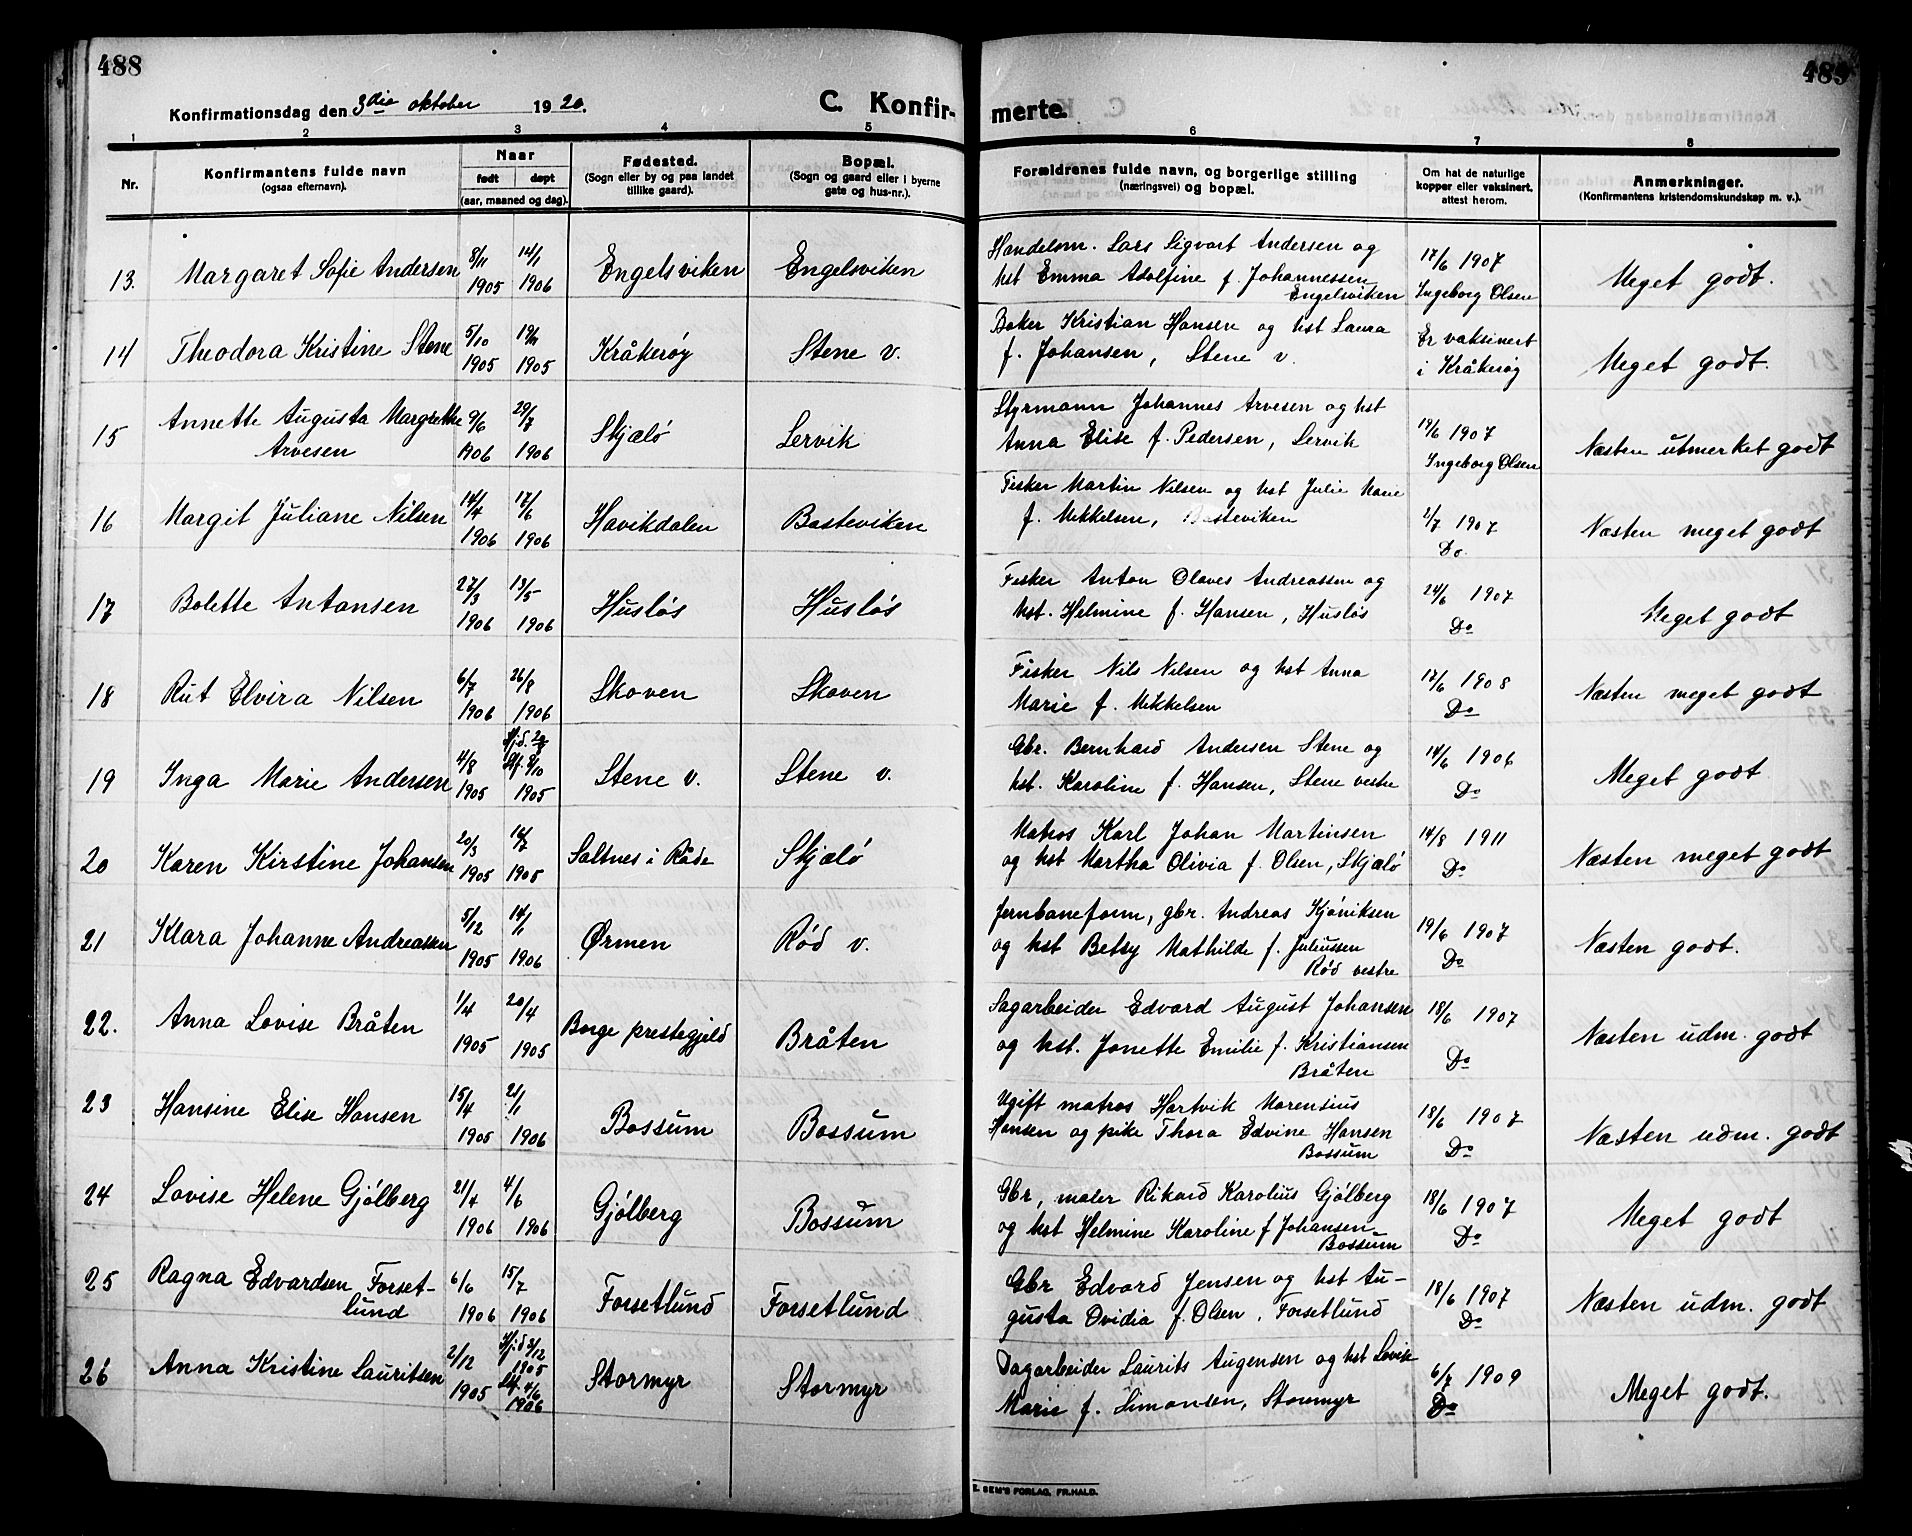 488
489
Konfirmationsdag den 3die oktober 1920.
C. Konfir-
merte.
1 2 3 4 5 6 7 8
Nr.
Konfirmantens fulde navn
(ogsaa efternavn).
Naar
født døpt
(aar, maaned og dag).
Fødested.
(Sogn eller by og paa landet
tillike gaard).
Bopæl.
(Sogn og gaard eller i byerne
gate og hus-nr.).
Forældrenes fulde navn, og borgerlige stilling
(næringsvei) og bopæl.
Om hat de naturlige
kopper eller vaksinert,
attest herom.
Anmerkninger.
(Konfirmantens kristendomskundskap m. v.).
13. Margaret Sofie Andersen 8/11 1905 14/1 1906 Engelsviken Engelsviken
Handelsm. Lars Sigvart Andersen og
hst Emma Adolfine f. Johannessen
Engelsviken
17/6 1907
Ingeborg Olsen
Meget godt.
14 Theodora Kristine Stene 5/10 1905 19/11 1905 Kråkerøy Stene v.
Baker Kristian Hansen og hst Laura
f. Johansen, Stene v.
Er vaksinert
i Kråkerøy
Meget godt.
15 Annette Augusta Margrethe
Arvesen 9/6 1906 29/7 1906 Skjælø Lervik
Styrmann Johannes Arvesen og hst
Anna Elise f. Pedersen, Lervik
19/6 1907
Ingeborg Olsen
Næsten utmerket godt
16 Margit Juliane Nilsen 14/4 1906 17/6 1906 Havikdalen Basteviken
Fisker Martin Nilsen og hst Julie Marie
f. Mikkelsen, Basteviken
2/7 1907
Do.
Næsten meget godt
17 Bolette Antonsen 27/3 1906 13/5 1906 Husløs Husløs
Fisker Anton Olaves Andreassen og
hst. Helmine f. Hansen, Husløs
24/6 1907
Do
Meget godt
18 Rut Elvira Nilsen 6/7 1906 26/8 1906 Skoven Skoven
Fisker Nils Nilsen og hst Anna
Marie f. Mikkelsen
17/6 1908
Do
Næsten meget godt
19 Inga Marie Andersen 4/8 1905 Hj.d. 8/10 1905 Stene v. Stene v.
Gbr. Bernhard Andersen Stene og
hst. Karoline f. Hansen, Stene vestre
14/6 1906
Do
Meget godt
20 Karen Kirstine Johansen 20/3 1905 16/7 1905 Saltnes i Råde Skjælø
Matros Karl Johan Martinsen
og hst Martha Olivia f. Olsen, Skjælø
14/8 1911
Do
Næsten meget godt
21 Klara Johanne Andreassen 5/12 1905 14/1 1906 Ørmen Rød v.
Jernbaneform, gbr. Andreas Kjøniksen
og hst Betsy Mathilde f. Juliussen
Rød vestre
19/6 1907
Do
Næsten godt.
22. Anna Lovise Bråten 1/4 1905 20/4 1905 Borge prestegjeld Bråten
Sagarbeider Edvard August Johansen
og hst. Jonette Emilie f. Kristiansen
Bråten
18/6 1907
Do
Næsten udm. godt
23 Hansine Elise Hansen 15/4 1905 21/1 1906 Bossum Bossum
Ugift matros Hartvik Marensius
Hansen og pike Thora Edvine Hansen
Bossum
18/6 1907
Do
Næsten udm. godt
24 Lovise Helene Gjølberg 21/4 1906 4/6 1906 Gjølberg Bossum
Gbr, maler Rikard Karolius Gjølberg
og hst Helmine Karoline f Johansen
Bossum
18/6 1907
Do
Meget godt
25 Ragna Edvardsen Forset-
lund 6/6 1906 15/7 1906 Forsetlund Forsetlund
Gbr Edvard Jensen og hst Au-
gusta Ovidia f. Olsen, Forsetlund
18/6 1907
Do
Næsten udm. godt
26 Anna Kristine Lauritsen 2/12 1905 Hj.d 3/12 1905 4/6 1906 Stormyr Stormyr
Dagarbeider Laurits Augensen og hst Lovise
Marie f. Simonsen, Stormyr
6/7 1909
Do
Meget godt.
E. SEM'S FORLAG, FR.HALD.